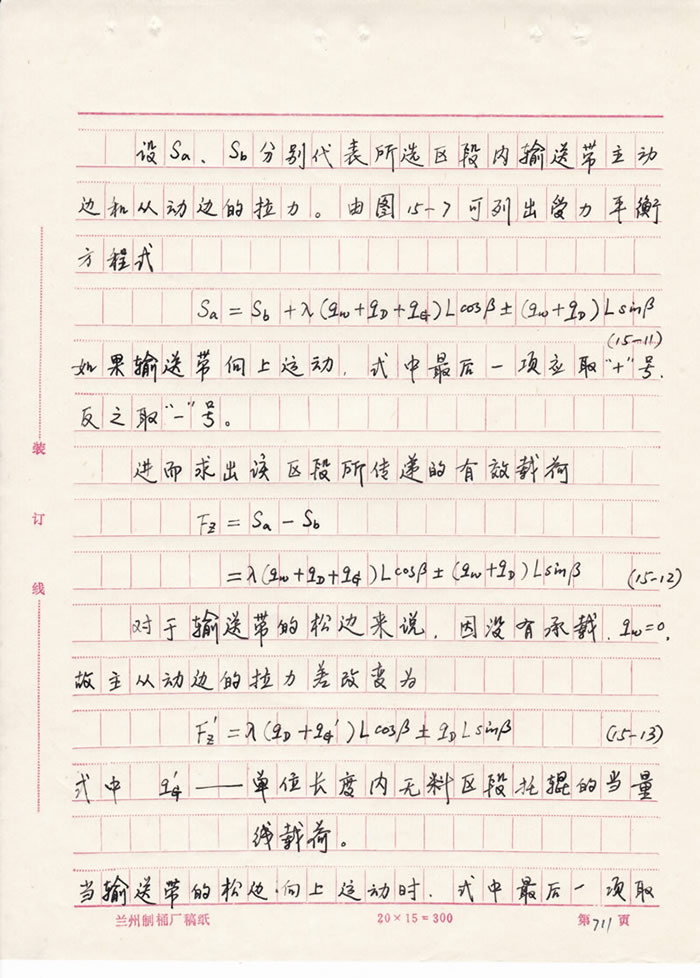 设Sa、Sb分别代表所选区段内输送带主动
边和从动边的拉力。由图15-7可列出受力平衡
方程式
Sa = Sb + λ(qw+qD+qG)Lcosβ ± (qw+qD)Lsinβ
(15-11)
如果输送带向上运动，式中最后一项应取"+"号，
反之取"-"号。
进而求出该区段所传递的有效载荷
Fz = Sa - Sb
= λ(qw+qD+qG)Lcosβ ± (qw+qD)Lsinβ (15-12)
对于输送带的松边来说，因没有承载，qw=0，
故主从动边的拉力差改变为
Fz' = λ(qD+qG')Lcosβ ± qDLsinβ (15-13)
式中 qG' —— 单位长度内无料区段托辊的当量
线载荷。
当输送带的松边向上运动时，式中最后一项取
装
订
线
兰州制桶厂稿纸 20×15=300 第711页